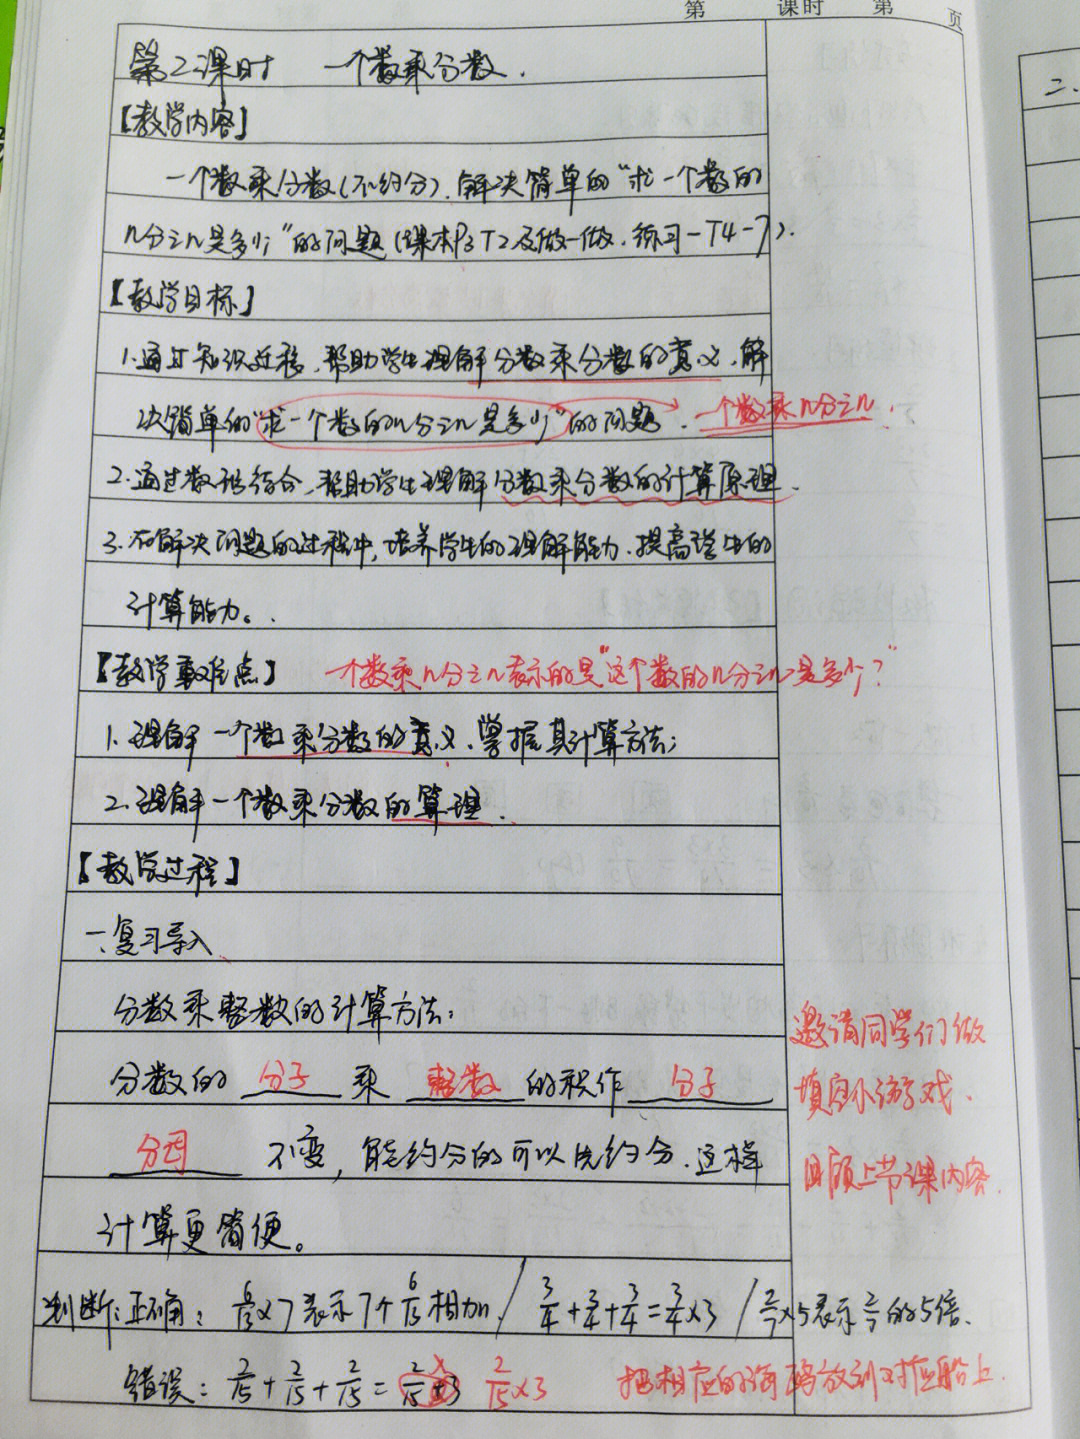 第 课时 第 页
第2课时 一个数乘分数.
【教学内容】
一个数乘分数(不约分).解决简单的"求一个数的
n分之n是多少"的问题(课本P3 T2及做一做.练习一T4-7).
【教学目标】
1.通过知识迁移,帮助学生理解分数乘分数的意义.解
决简单的"求一个数的n分之n是多少"的问题. 一个数乘n分之n.
2.通过数形结合,帮助学生理解分数乘分数的计算原理.
3.在解决问题的过程中,培养学生的理解能力.提高学生的
计算能力。
【教学重难点】 一个数乘n分之n表示的是"这个数的n分之n是多少?"
1.理解一个数乘分数的意义.掌握其计算方法;
2.理解一个数乘分数的算理.
【教学过程】
一.复习导入
分数乘整数的计算方法:
分数的 分子 乘 整数 的积作 分子
分母 不变,能约分的可以先约分.这样
计算更简便。
邀请同学们做
填空小游戏.
回顾上节课内容.
判断:正确: 6/13×7表示7个6/13相加 / 3/4+3/4+3/4=3/4×3 / 2/7×5表示2/7的5倍.
错误: 2/15+2/15+2/15=2/15+3 2/15×3 把相应的海鸥放到对应船上.
二、